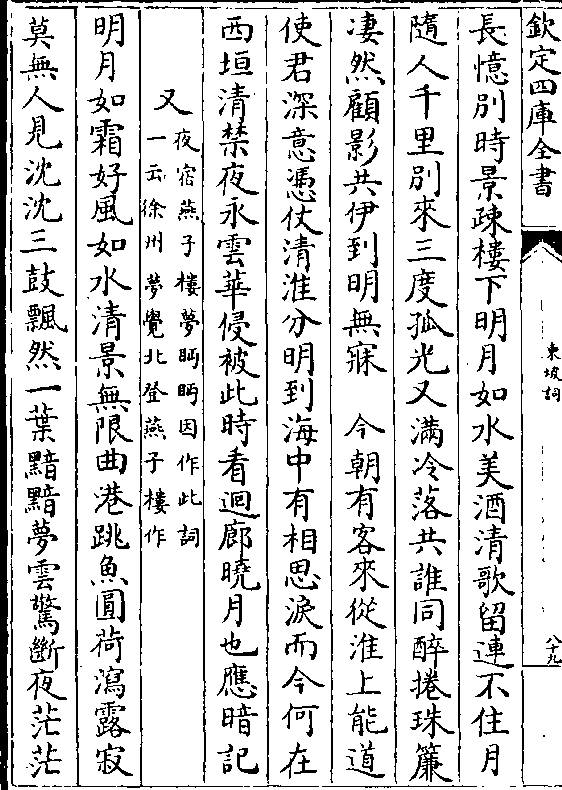 欽定四庫全書
東坡詞
八十九
長憶別時景疎樓下明月如水美酒清歌留連不住月
隨人千里別來三度孤光又滿冷落共誰同醉捲珠簾
凄然顧影共伊到明無寐　今朝有客來從淮上能道
使君深意憑仗清淮分明到海中有相思淚而今何在
西垣清禁夜永雲華侵被此時看迴廊曉月也應暗記
又
夜宿燕子樓夢盼盼因作此詞
一云徐州夢覺北登燕子樓作
明月如霜好風如水清景無限曲港跳魚圓荷瀉露寂
莫無人見沈沈三鼓飄然一葉黯黯夢雲驚斷夜茫茫